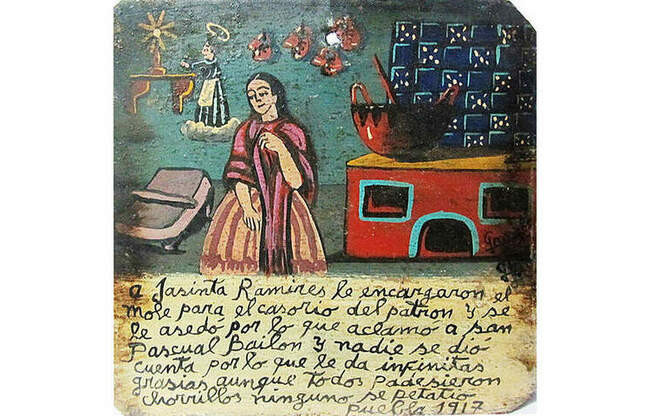 a Jasinta Ramires le encargaron el
mole para el casorio del patron y se
le asedó por lo que aclamó a san
Pascual Bailon y nadie se dió
cuenta por lo que le da infinitas
grasias aunque todos padesieron
chorrillos ninguno se petatio
Puebla 1917